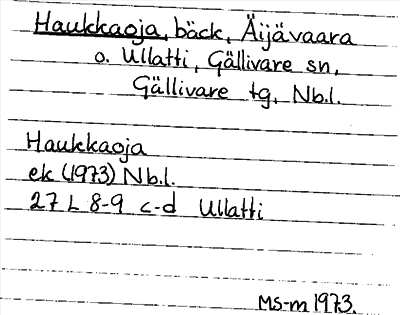 Haukkaoja, bäck, Äijävaara
o. Ullatti, Gällivare sn,
Gällivare tg, Nb.l.
Haukkaoja
ek (1973) Nb.l.
27 L 8-9 c-d Ullatti
MS-m 1973.